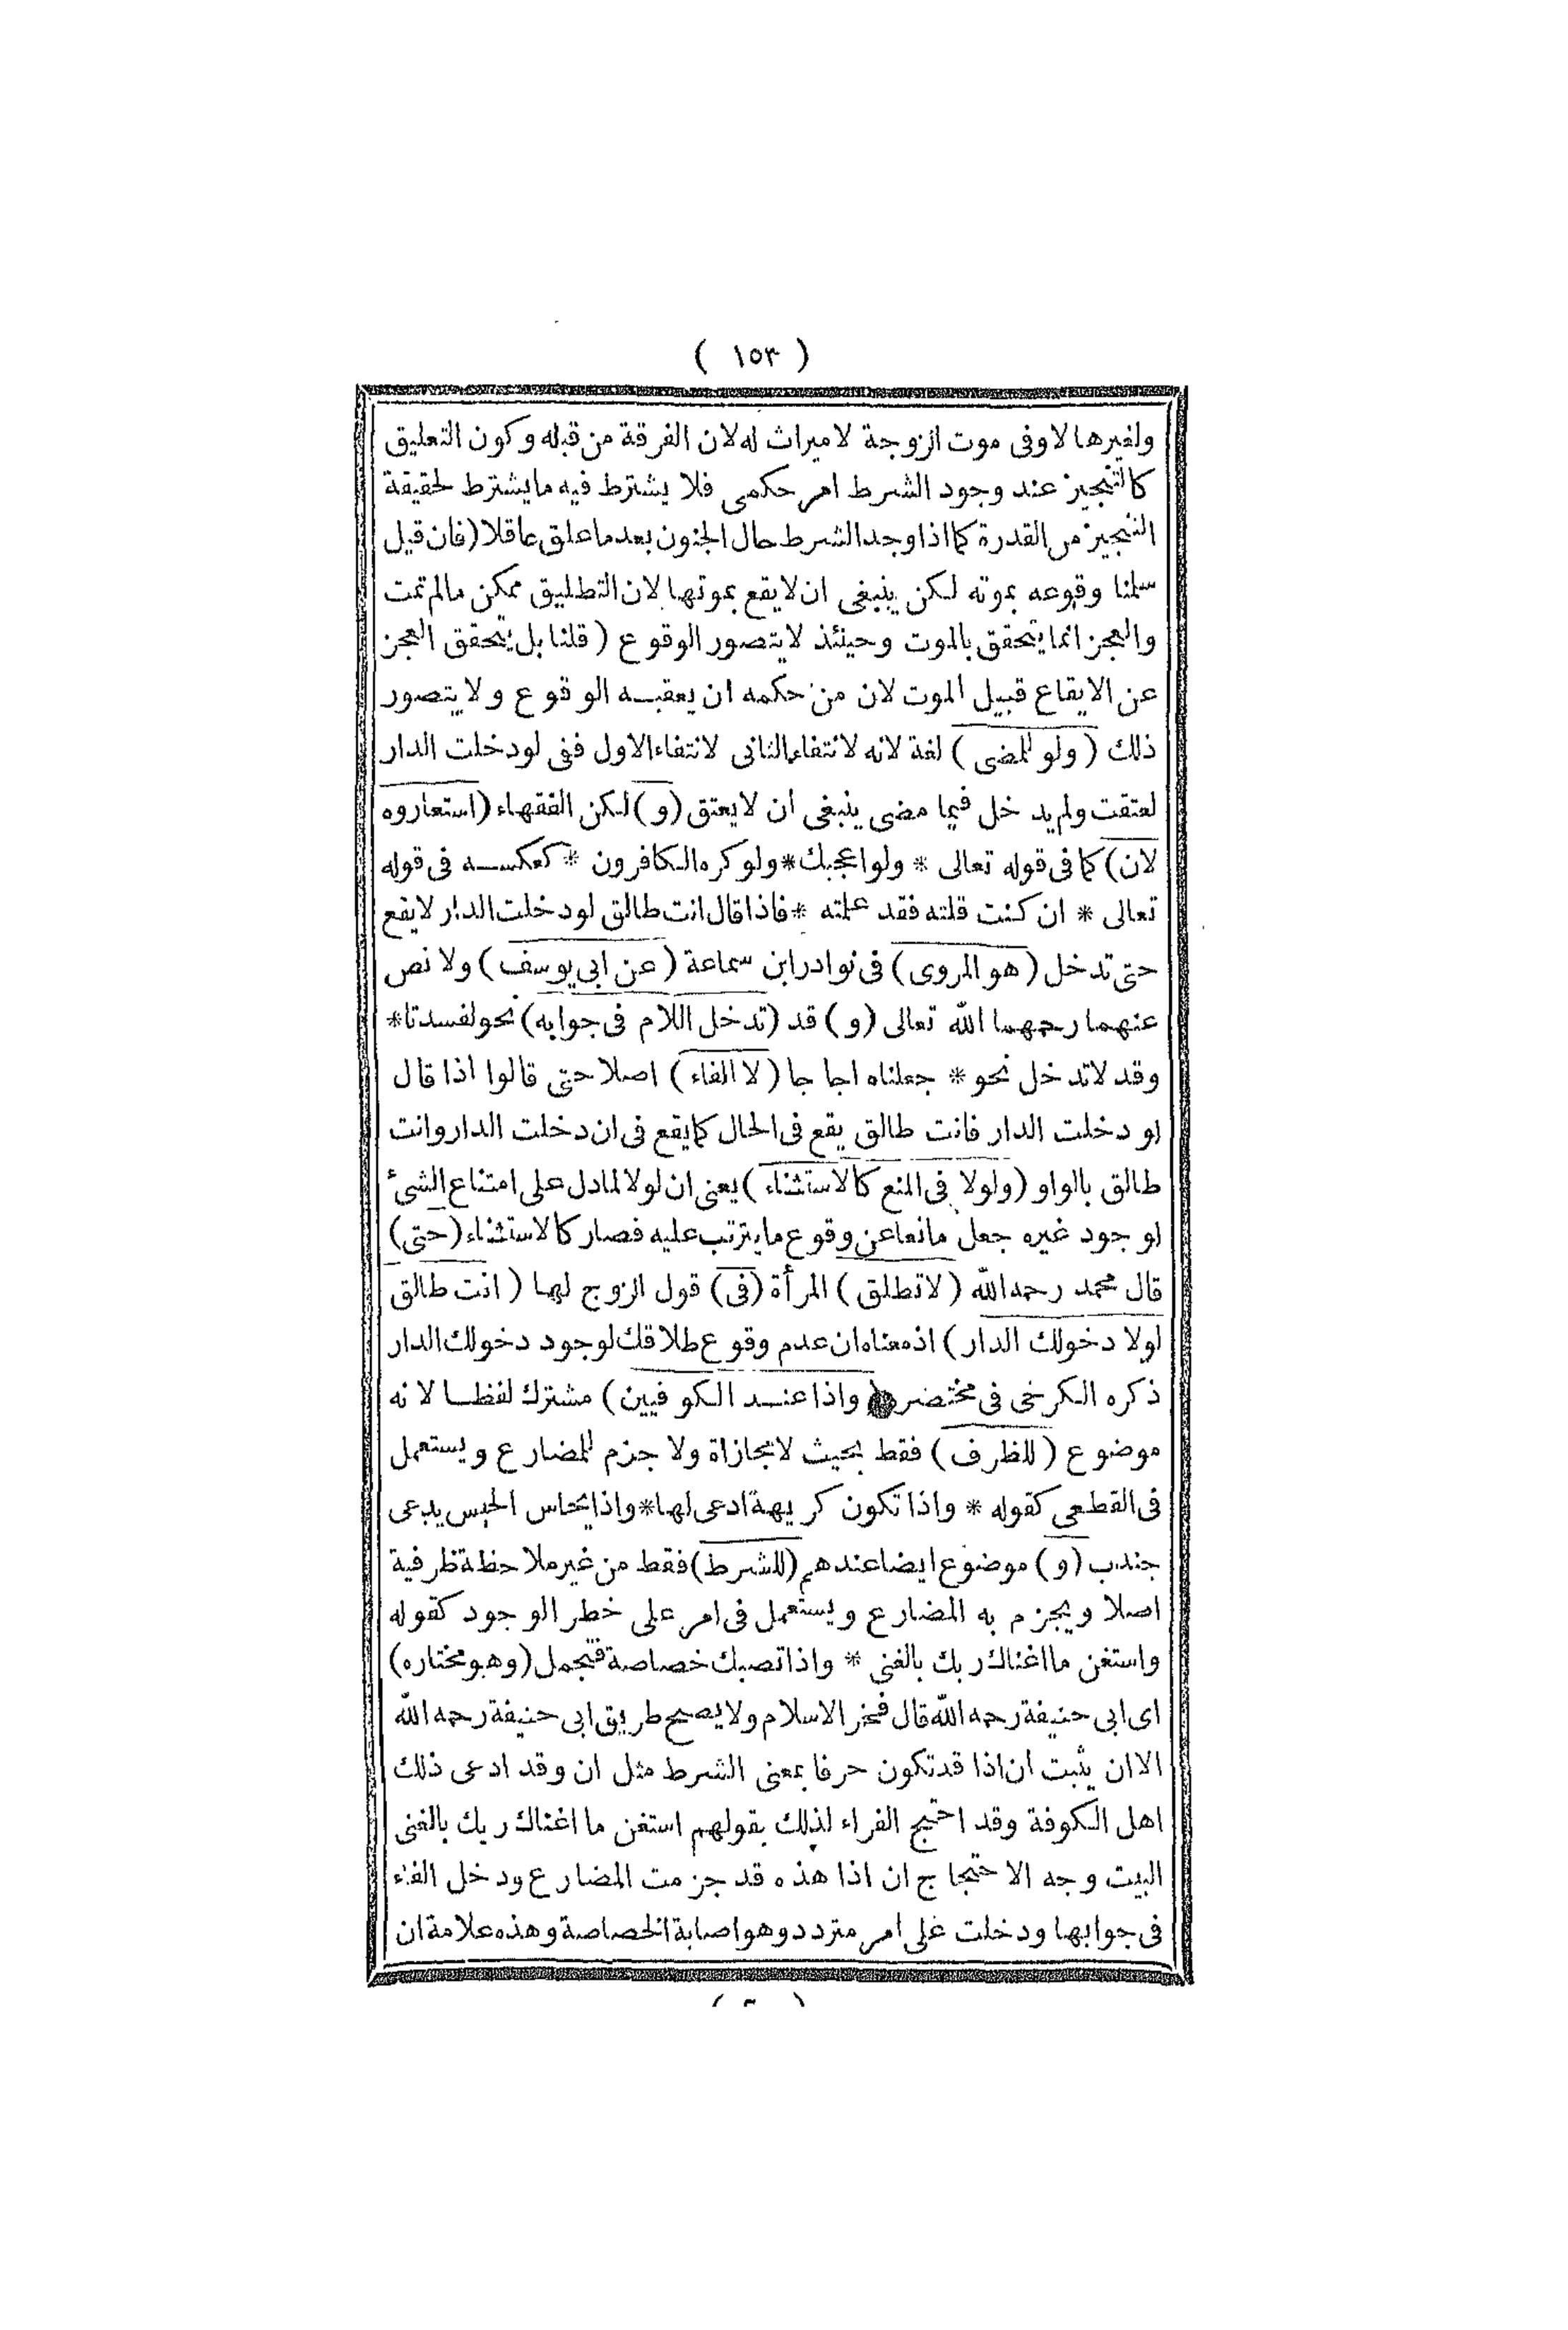 ( ١٥٣ )
ولغيرها لا وفى موت الزوجة لا ميراث له لان الفرقة من قبله وكون التعليق
كالتنجيز عند وجود الشرط امر حكمى فلا يشترط فيه ما يشترط لحقيقة
التنجيز من القدرة كما اذا وجد الشرط حال الجنون بعد ما علق عاقلا (فان قيل
سلمنا وقوعه بموته لكن ينبغى ان لا يقع بموتها لان التطليق ممكن ما لم تمت
والعجز انما يتحقق بالموت وحينئذ لا يتصور الوقوع (قلنا بل يتحقق العجز
عن الايقاع قبيل الموت لان من حكمه ان يعقبه الوقوع ولا يتصور
ذلك (ولو للمضى) لغة لانه لانتفاء الثانى لانتفاء الاول ففى لو دخلت الدار
لعتقت ولم يدخل فيما مضى ينبغى ان لا يعتق (و) لكن الفقهاء (استعاروه
لان) كما فى قوله تعالى * ولو اعجبك * ولو كره الكافرون * كعكسه فى قوله
تعالى * ان كنت قلته فقد علمته * فاذا قال انت طالق لو دخلت الدار لا يقع
حتى تدخل (هو المروى) فى نوادر ابن سماعة (عن ابى يوسف) ولا نص
عنهما رحمهما الله تعالى (و) قد (تدخل اللام فى جوابه) نحو لفسدتا *
وقد لا تدخل نحو * جعلناه اجاجا (لا الفاء) اصلا حتى قالوا اذا قال
لو دخلت الدار فانت طالق يقع فى الحال كما يقع فى ان دخلت الدار وانت
طالق بالواو (ولولا فى المنع كالاستثناء) يعنى ان لولا لما دل على امتناع الشئ
لوجود غيره جعل مانعا عن وقوع ما يترتب عليه فصار كالاستثناء (حتى)
قال محمد رحمه الله (لا تطلق) المرأة (فى) قول الزوج لها (انت طالق
لولا دخولك الدار) اذ معناه ان عدم وقوع طلاقك لوجود دخولك الدار
ذكره الكرخى فى مختصره (واذا عند الكوفيين) مشترك لفظا لانه
موضوع (للظرف) فقط بحيث لا مجازاة ولا جزم للمضارع ويستعمل
فى القطعى كقوله * واذا تكون كريهة ادعى لها * واذا يحاس الحيس يدعى
جندب (و) موضوع ايضا عندهم (للشرط) فقط من غير ملاحظة ظرفية
اصلا ويجزم به المضارع ويستعمل فى امر على خطر الوجود كقوله
واستغن ما اغناك ربك بالغنى * واذا تصبك خصاصة فتجمل (وهو مختاره)
اى ابى حنيفة رحمه الله قال فخر الاسلام ولا يصح طريق ابى حنيفة رحمه الله
الا ان يثبت ان اذا قد تكون حرفا بمعنى الشرط مثل ان وقد ادعى ذلك
اهل الكوفة وقد احتج الفراء لذلك بقولهم استغن ما اغناك ربك بالغنى
البيت وجه الاحتجاج ان اذا هذه قد جزمت المضارع ودخل الفاء
فى جوابها ودخلت على امر متردد وهو اصابة الخصاصة وهذه علامة ان